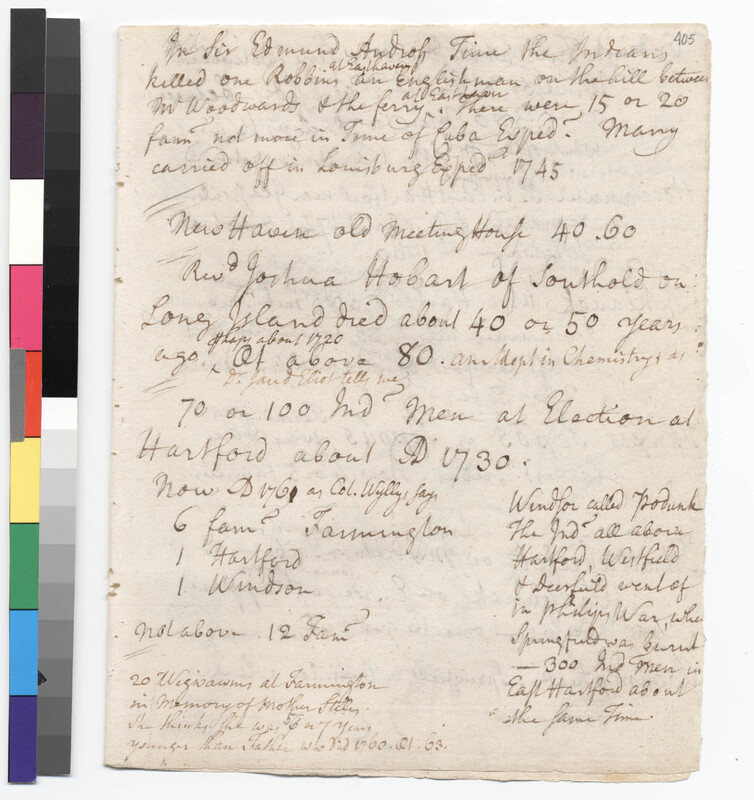 405
In Sir Edmund Andross Time the Indians
at East haven
killed one Robbins an Englishman on the hill between
at East haven
Mr Woodwards & the ferry. There were 15 or 20
famˢ not more in Time of Cuba Expedⁿ. Many
carried off in Louisburg Expedⁿ 1745
New Haven old Meeting House 40.60
Revᵈ Joshua Hobart of Southold on
Long Island died about 40 or 50 years
phaps about 1720
ago. Æt above 80. an Adept in Chemistry, as
Dr Jared Eliot tells me
70 or 100 Indⁿ Men at Election at
Hartford about AD 1730.
Now AD 1761 as Col. Wyllys says
6 famˢ Farmington
1 Hartford
1 Windsor
not above 12 Famˢ
20 Wigwawms at Farmington
in Memory of Mother Stiles.
She thinks she was 56 or 7 years
younger than Father who d'd 1760. Æt. 63.
Windsor called Podunk
The Indˢ all above
Hartford, Westfield
& Deerfield went of
in Philips War, when
Springfield was burnt
— 300 Indⁿ Men in
East Hartford about
the same Time.